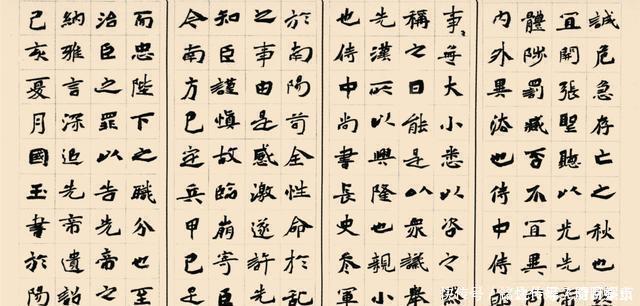 誠危急存亡之秋也
宜開張聖聽以光先
體陟罰臧否不宜異
內外異法也侍中侍
事無大小悉以咨之
稱之曰能是以衆議舉
先漢所以興隆也親小
也侍中尚書長史參軍
於南陽苟全性命於亂
之事由是感激遂許先
知臣謹慎故臨崩寄臣
今南方已定兵甲已
而忠陛下之職分也至
治臣之罪以告先帝之
納雅言深追先帝遺詔
己亥夏月國玉書於陽